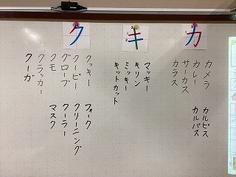 カ
カメラ
カレー
サーカス
カラス
カルピス
カルパス
キ
マッキー
キリン
ミッキー
キットカット
ク
クッキー
クーピー
グローブ
クモ
クラッカー
クーガー
フォーク
クリーニング
クーラー
マスク